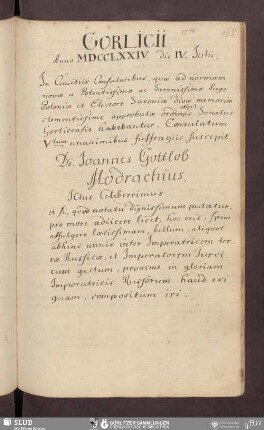 GORLICII
Anno MDCCLXXIV. die IV. Iulii.
In Comitiis Consularibus, quae ad normam
novae a Potentissimo ac Serenissimo Rege
Poloniae et Electore Saxoniae divae memoriae
clementissime approbatae ordinis Senatus
Gorlicensis habebantur, Consulatum
Vtum unanimibus suffragiis suscepit
Ds. Ioannes Gottlob
Modrachius,
Ictus Celeberrimus
a se, quod notatu dignissimum putatur,
pro more adiicere licet, hoc erit: spem
affulgere laetissimam, bellum, aliquot
abhinc annis inter Imperatricem ter-
rae Russicae, et Imperatorem Turci-
cum gestum, proxime in gloriam
Imperatricis Russorum haud exi-
guam, compositum iri.
SLUB
GÖRLITZER SAMMLUNGEN